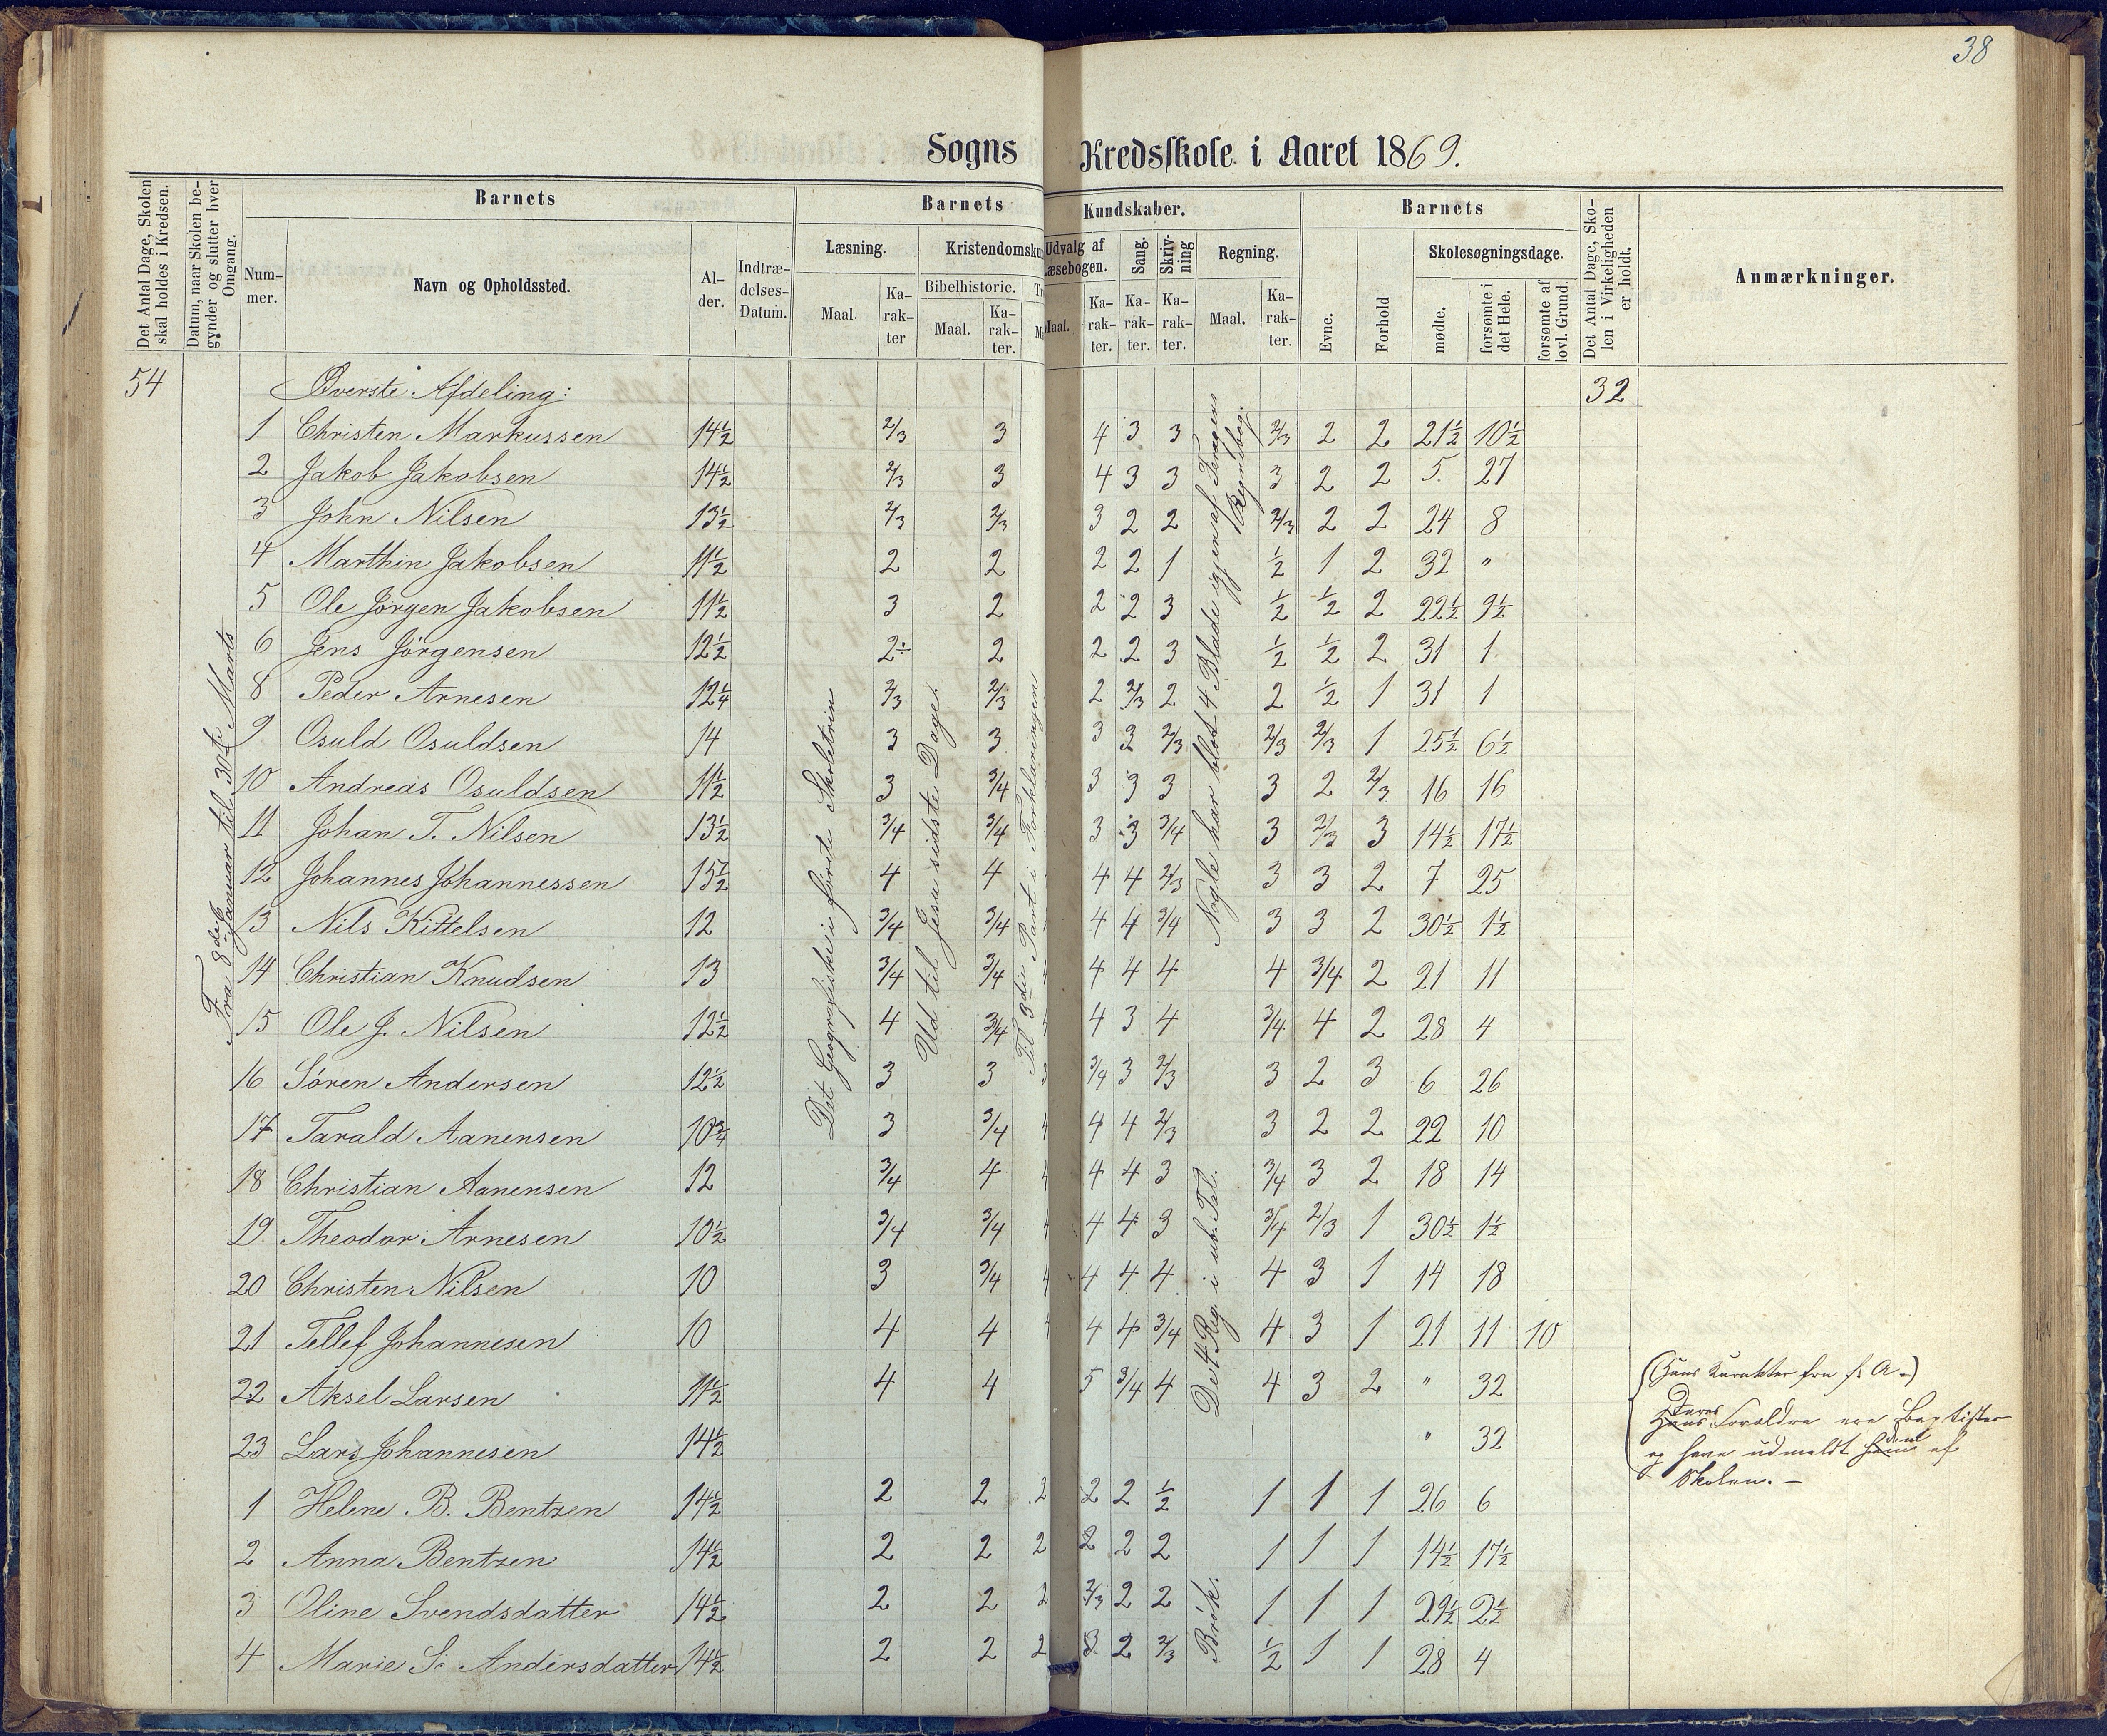 38
Sogns Kredsskole i Aaret 1869.
Det Antal Dage, Skolen skal holdes i Kredsen.
Datum, naar Skolen begynder og slutter hver Omgang.
Barnets
Nummer.
Navn og Opholdssted.
Alder.
Indtrædelses-Datum.
Barnets Kundskaber.
Læsning.
Maal.
Karakter
Kristendomskun
Bibelhistorie.
Maal.
Karakter.
Udvalg af Læsebogen.
Maal.
Karakter.
Sang.
Karakter.
Skrivning
Karakter.
Regning.
Maal.
Karakter.
Barnets
Evne.
Forhold
Skolesøgningsdage.
mødte.
forsømte i det Hele.
forsømte af lovl. Grund.
Det Antal Dage, Skolen i Virkeligheden er holdt.
Anmærkninger.
54 Øverste Afdeling: 32
1 Christen Markussen 14½ 2/3 3 4 3 3 2/3 2 2 21½ 10½
2 Jakob Jakobsen 14½ 2/3 3 4 3 3 3 2 2 5 27
3 John Nilsen 13½ 2/3 2/3 3 2 2 2/3 2 2 24 8
4 Marthin Jakobsen 11½ 2 2 2 2 1 ½ 1 2 32 "
5 Ole Jørgen Jakobsen 11½ 3 2 2 2 3 ½ ½ 2 22½ 9½
6 Jens Jørgensen 12½ 2÷ 2 2 2 3 ½ ½ 2 31 1
8 Peder Arnesen 12¼ 2/3 2/3 2 2/3 2 2 ½ 1 31 1
9 Osuld Osuldsen 14 3 3 3 3 2/3 2/3 2/3 1 25½ 6½
10 Andreas Osuldsen 11½ 3 3/4 3 3 3 3 2 2/3 16 16
11 Johan T. Nilsen 13½ 3/4 3/4 3 3 3/4 3 2/3 3 14½ 17½
12 Johannes Johannessen 15½ 4 4 4 4 2/3 3 3 2 7 25
13 Nils Kittelsen 12 3/4 3/4 4 4 3/4 3 3 2 30½ 1½
14 Christian Knudsen 13 3/4 3/4 4 4 4 4 3/4 2 21 11
15 Ole J. Nilsen 12½ 4 3/4 4 3 4 3/4 4 2 28 4
16 Søren Andersen 12½ 3 3 3/4 3 2/3 3 2 3 6 26
17 Tarald Aanensen 10¾ 3 3/4 4 4 2/3 3 2 2 22 10
18 Christian Aanensen 12 3/4 4 4 4 3 3/4 3 2 18 14
19. Theodor Arnesen 10½ 3/4 3/4 4 4 3 3/4 2/3 1 30½ 1½
20 Christen Nilsen 10 3 3/4 4 4 4 4 3 1 14 18
21 Tellef Johannesen 10 4 4 4 4 3/4 4 3 1 21 11 10
22 Aksel Larsen 11½ 4 4 5 3/4 4 4 3 2 " 32
23 Lars Johannesen 14½ " 32
1 Helene B. Bentzen 14½ 2 2 2 2 2 ½ 1 1 1 26 6
2 Anna Bentzen 14½ 2 2 2 2 2 2 1 1 1 14½ 17½
3 Oline Svendsdatter 14½ 2 2 2 2/3 2 2 1 1 1 29½ 2½
4 Marie S. Andersdatter 14½ 2 2 2 3 2 2/3 ½ 1 1 28 4
Fra 8de Januar til 30te Marts
Det Geografiske i første Skoletrin
Ud til Jesu sidste Dage.
Til 3die Part i Forklaringen
Nogle har blot 4 Blade igjen af Regnebog.
De 4 Reg. i ub. Tal.
Brøk.
(Hans Karakter fra f. A.)
Deres Forældre ere Baptister
og have udmeldt dem af
Skolen. –